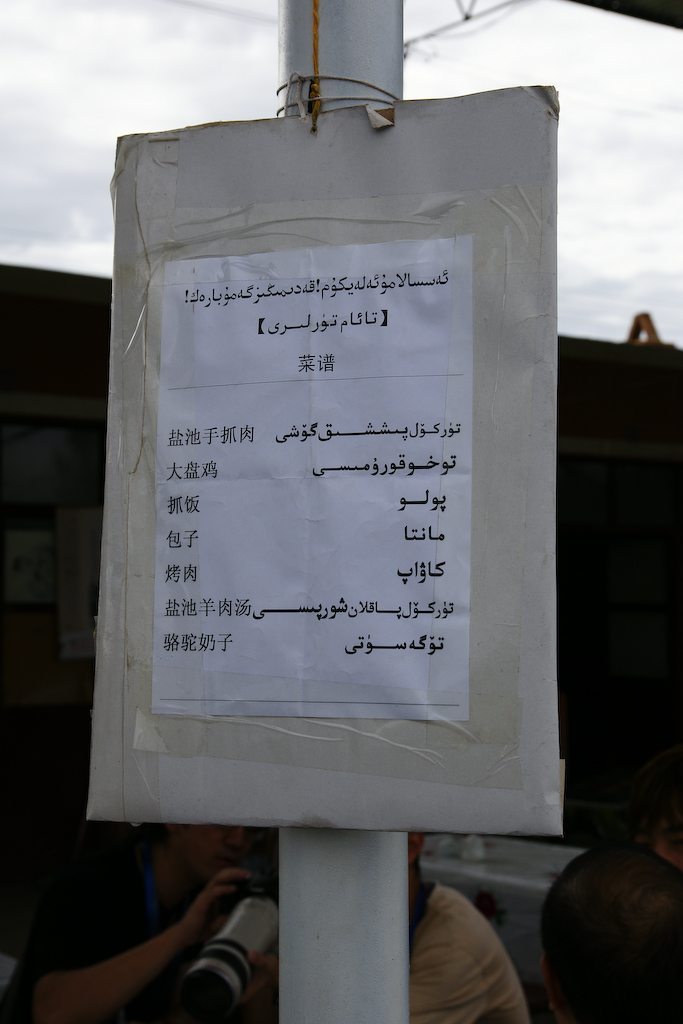 ئەسسالامۇئەلەيكۇم!قەدىمىڭىزگەمۇبارەك!
【تائام تۈرلىرى】
菜谱
盐池手抓肉 تۈركۆل پىششىق گۆشى
大盘鸡 توخو قورۇمىسى
抓饭 پولو
包子 مانتا
烤肉 كاۋاپ
盐池羊肉汤 تۈركۆل پاقلان شورپىسى
骆驼奶子 تۆگە سۈتى